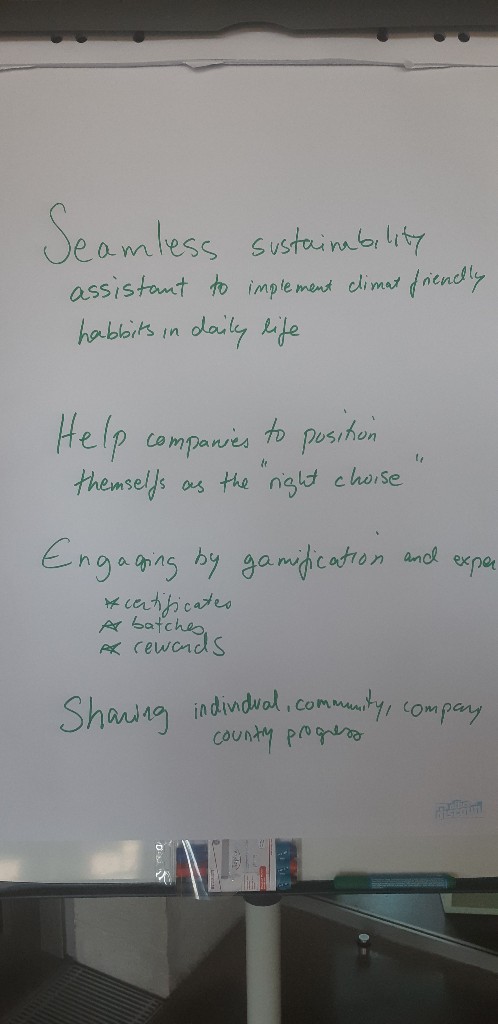 Seamless sustainability
assistant to implement climat friendly
habbits in daily life
Help companies to position
themselfs as the "right choise"
Engaging by gamification and exper
* certificates
* batches
* rewards
Sharing individual, community, company
county progress